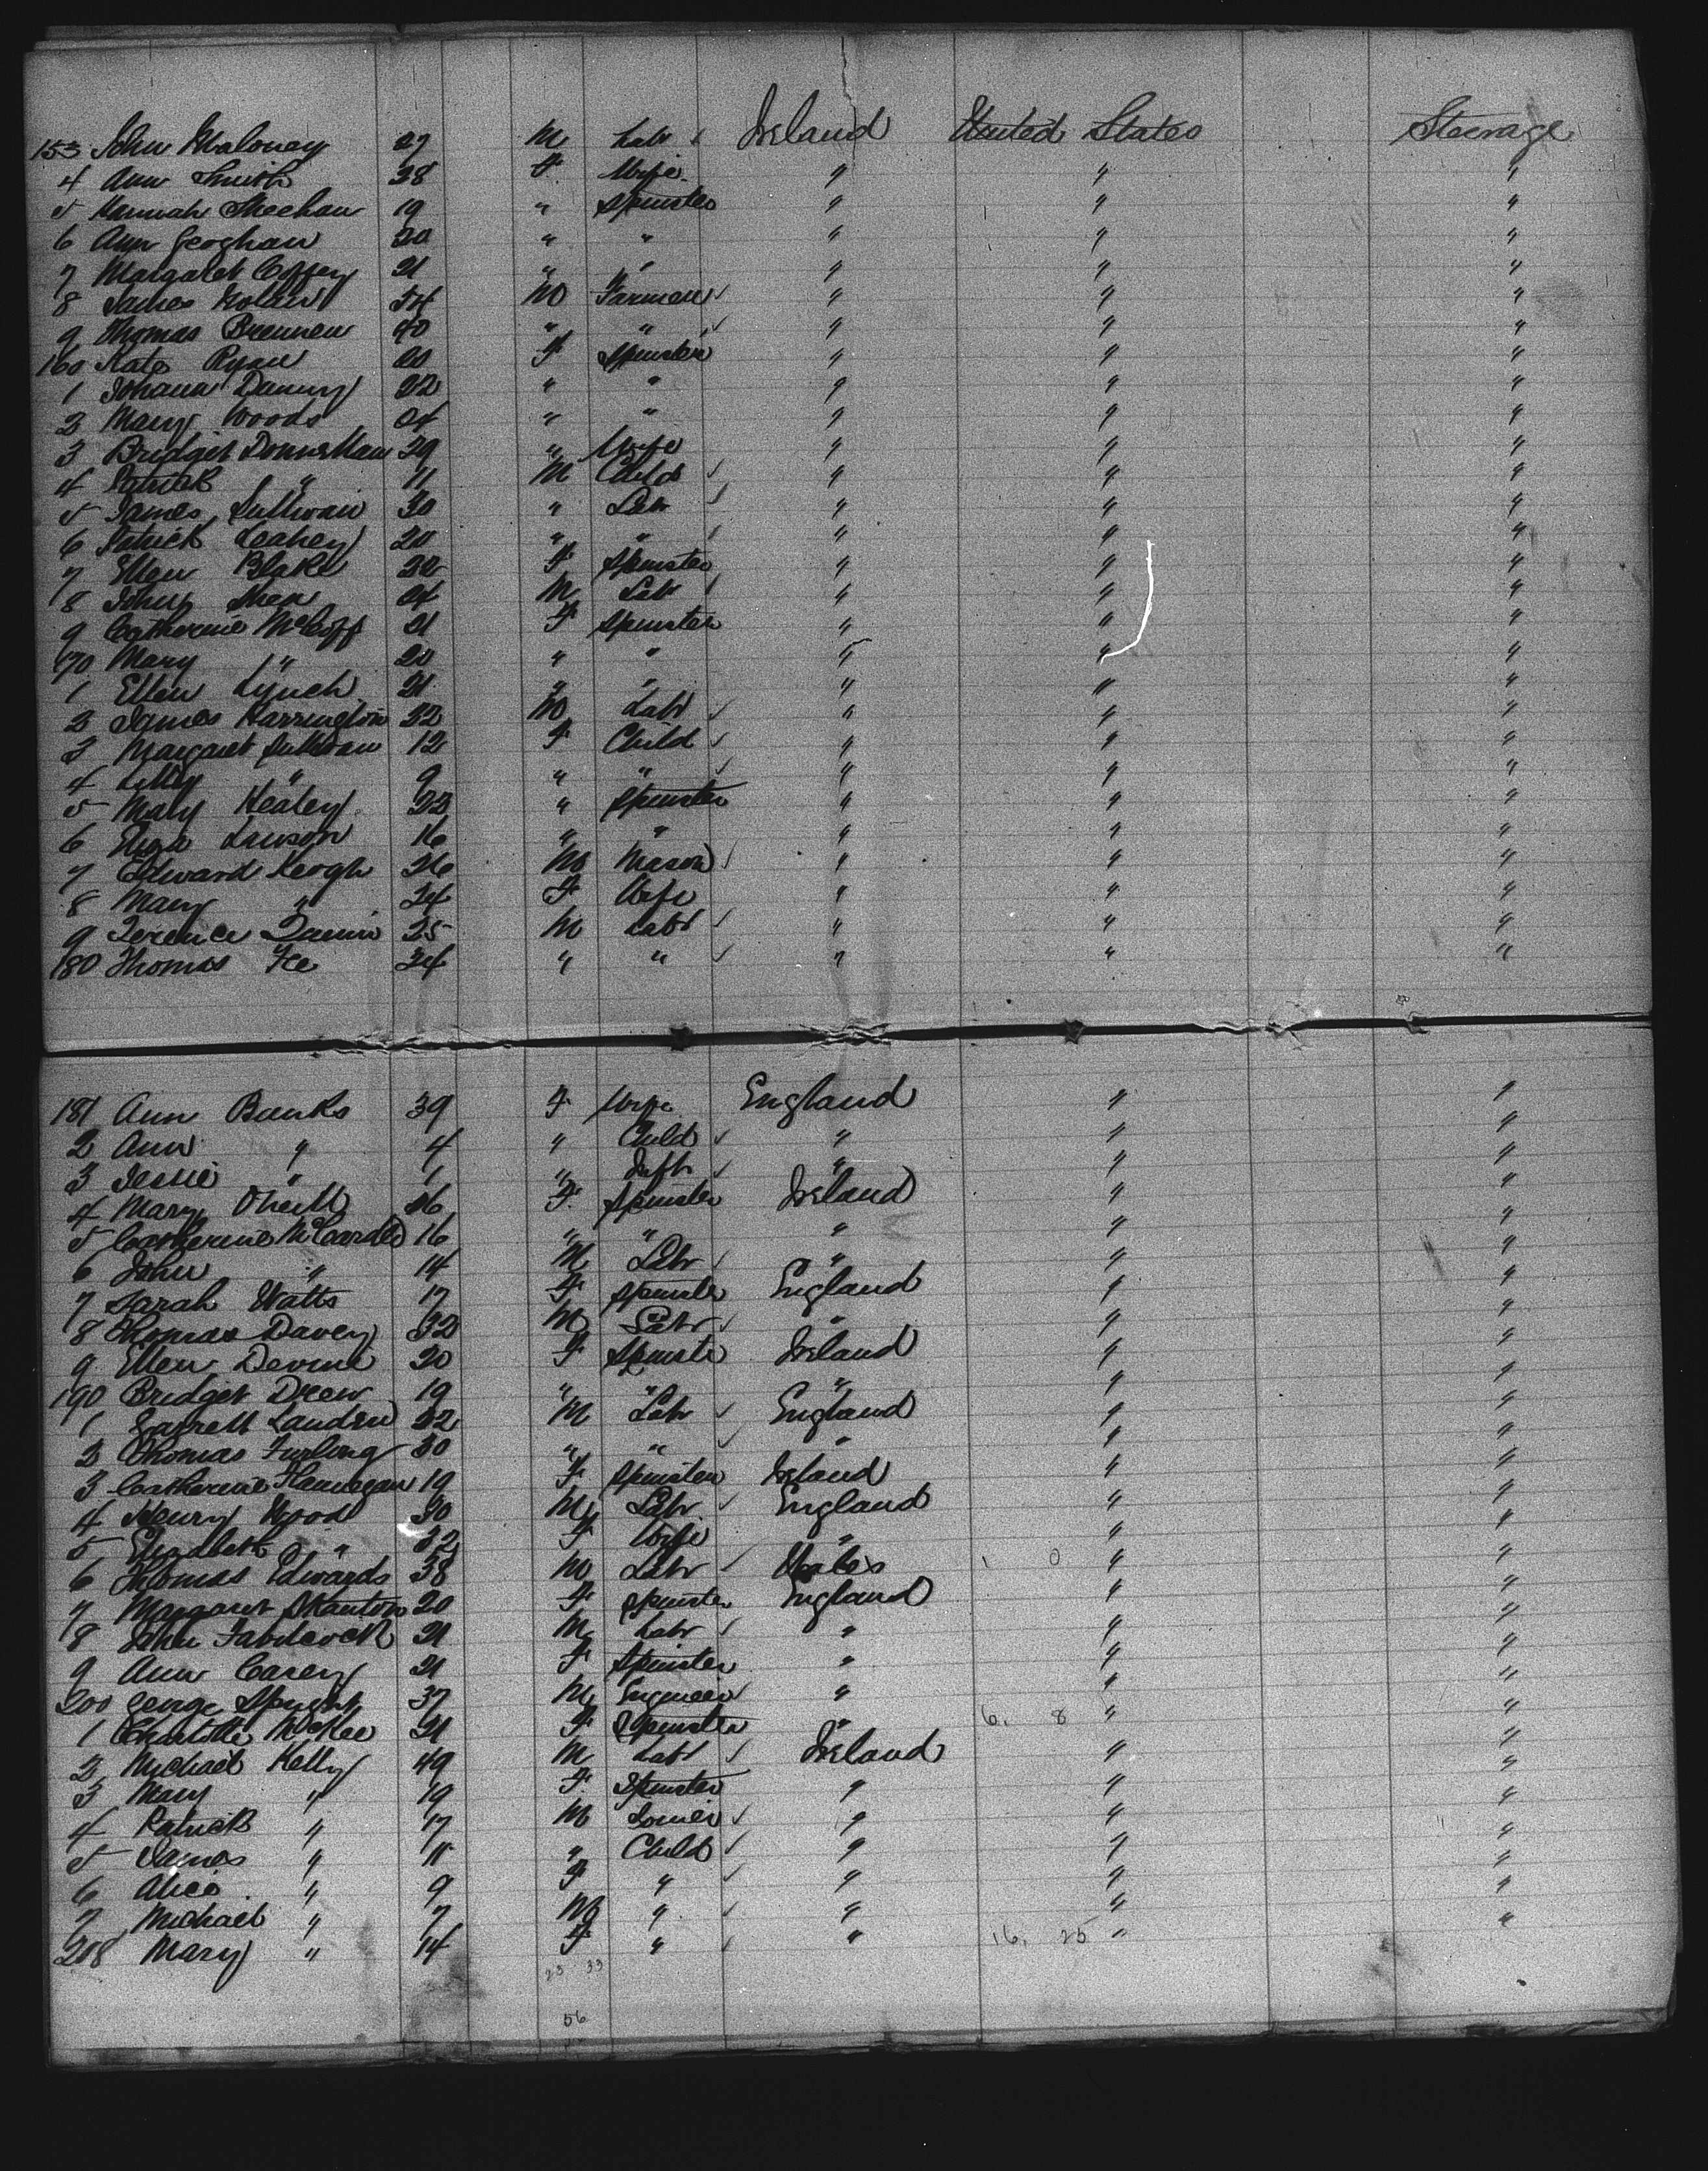 153 John Maloney 27 M Labr Ireland United States Steerage
4 Ann Smith 38 F Wife " " "
5 Hannah Sheehan 19 " Spinster " " "
6 Ann Geoghan 20 " " " " "
7 Margaret Coffey 21 " " " " "
8 James Nolan 54 M Farmer " " "
9 Thomas Brennen 40 " " " " "
160 Kate Ryan 20 F Spinster " " "
1 Johana Danny 22 " " " " "
2 Mary Woods 24 " " " " "
3 Bridget 29 " Wife " " "
4 Patrick " 11 M Child " " "
5 James Sullivan 30 " Labr " " "
6 Patrick Leahey 20 " " " " "
7 Ellen Blake 22 F Spinster " " "
8 John Shea 24 M Labr " " "
9 Catherine 21 F Spinster " " "
170 Mary " 20 " " " " "
1 Ellen Lynch 21 " " " " "
2 James Harrington 22 M Labr " " "
3 Margaret Sullivan 12 F Child " " "
4 " 9 " " " " "
5 Mary Healey 22 " Spinster " " "
6 Eliza Lawson 16 " " " " "
7 Edward Keogh 26 M Mason " " "
8 Mary " 24 F Wife " " "
9 Terence Quinn 25 M Labr " " "
180 Thomas Fee 24 " " " " "
181 Ann Banks 39 F Wife England " "
2 Ann " 4 " Child " " "
3 Jessie " 1 " Inft " " "
4 Mary ONeill 26 F Spinster Ireland " "
5 Catherine McCardle 16 " " " " "
6 John " 14 M Labr " " "
7 Sarah Watts 17 F Spinster England " "
8 Thomas Davey 32 M Labr " " "
9 Ellen Devine 20 F Spinster Ireland " "
190 Bridget Drew 19 " " " " "
1 Garrett Landen 22 M Labr England " "
2 Thomas Furlong 30 " " " " "
3 Catherine Flannegan 19 F Spinster Ireland " "
4 Henry Wood 30 M Labr England " "
5 Elizabeth " 32 F Wife " " "
6 Thomas Edwards 38 M Labr Wales 1 0 " "
7 Margaret Stanton 20 F Spinster England " "
8 John 21 M Labr " " "
9 Ann Carey 21 F Spinster " " "
200 George Speight 37 M Engineer " " "
1 Charlotte McKee 21 F Spinster " 6. 8 " "
2 Michael Kelly 49 M Labr Ireland " "
3 Mary " 19 F Spinster " " "
4 Patrick " 17 M Joiner " " "
5 James " 11 " Child " " "
6 Alice " 9 F " " " "
7 Michael " 7 M " " " "
208 Mary " 14 F " " 16. 25 " "
23 33
56